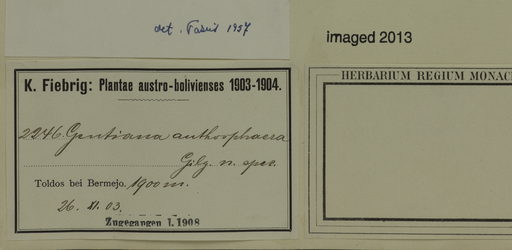 det. Fabris 1957
imaged 2013
K. Fiebrig: Plantae austro-bolivienses 1903-1904.
2246. Gentiana anthosphaera
Gilg. n. spec.
Toldos bei Bermejo. 1900 m.
26. XI. 03.
Zugegangen 1. 1908
HERBARIUM REGIUM MONAC